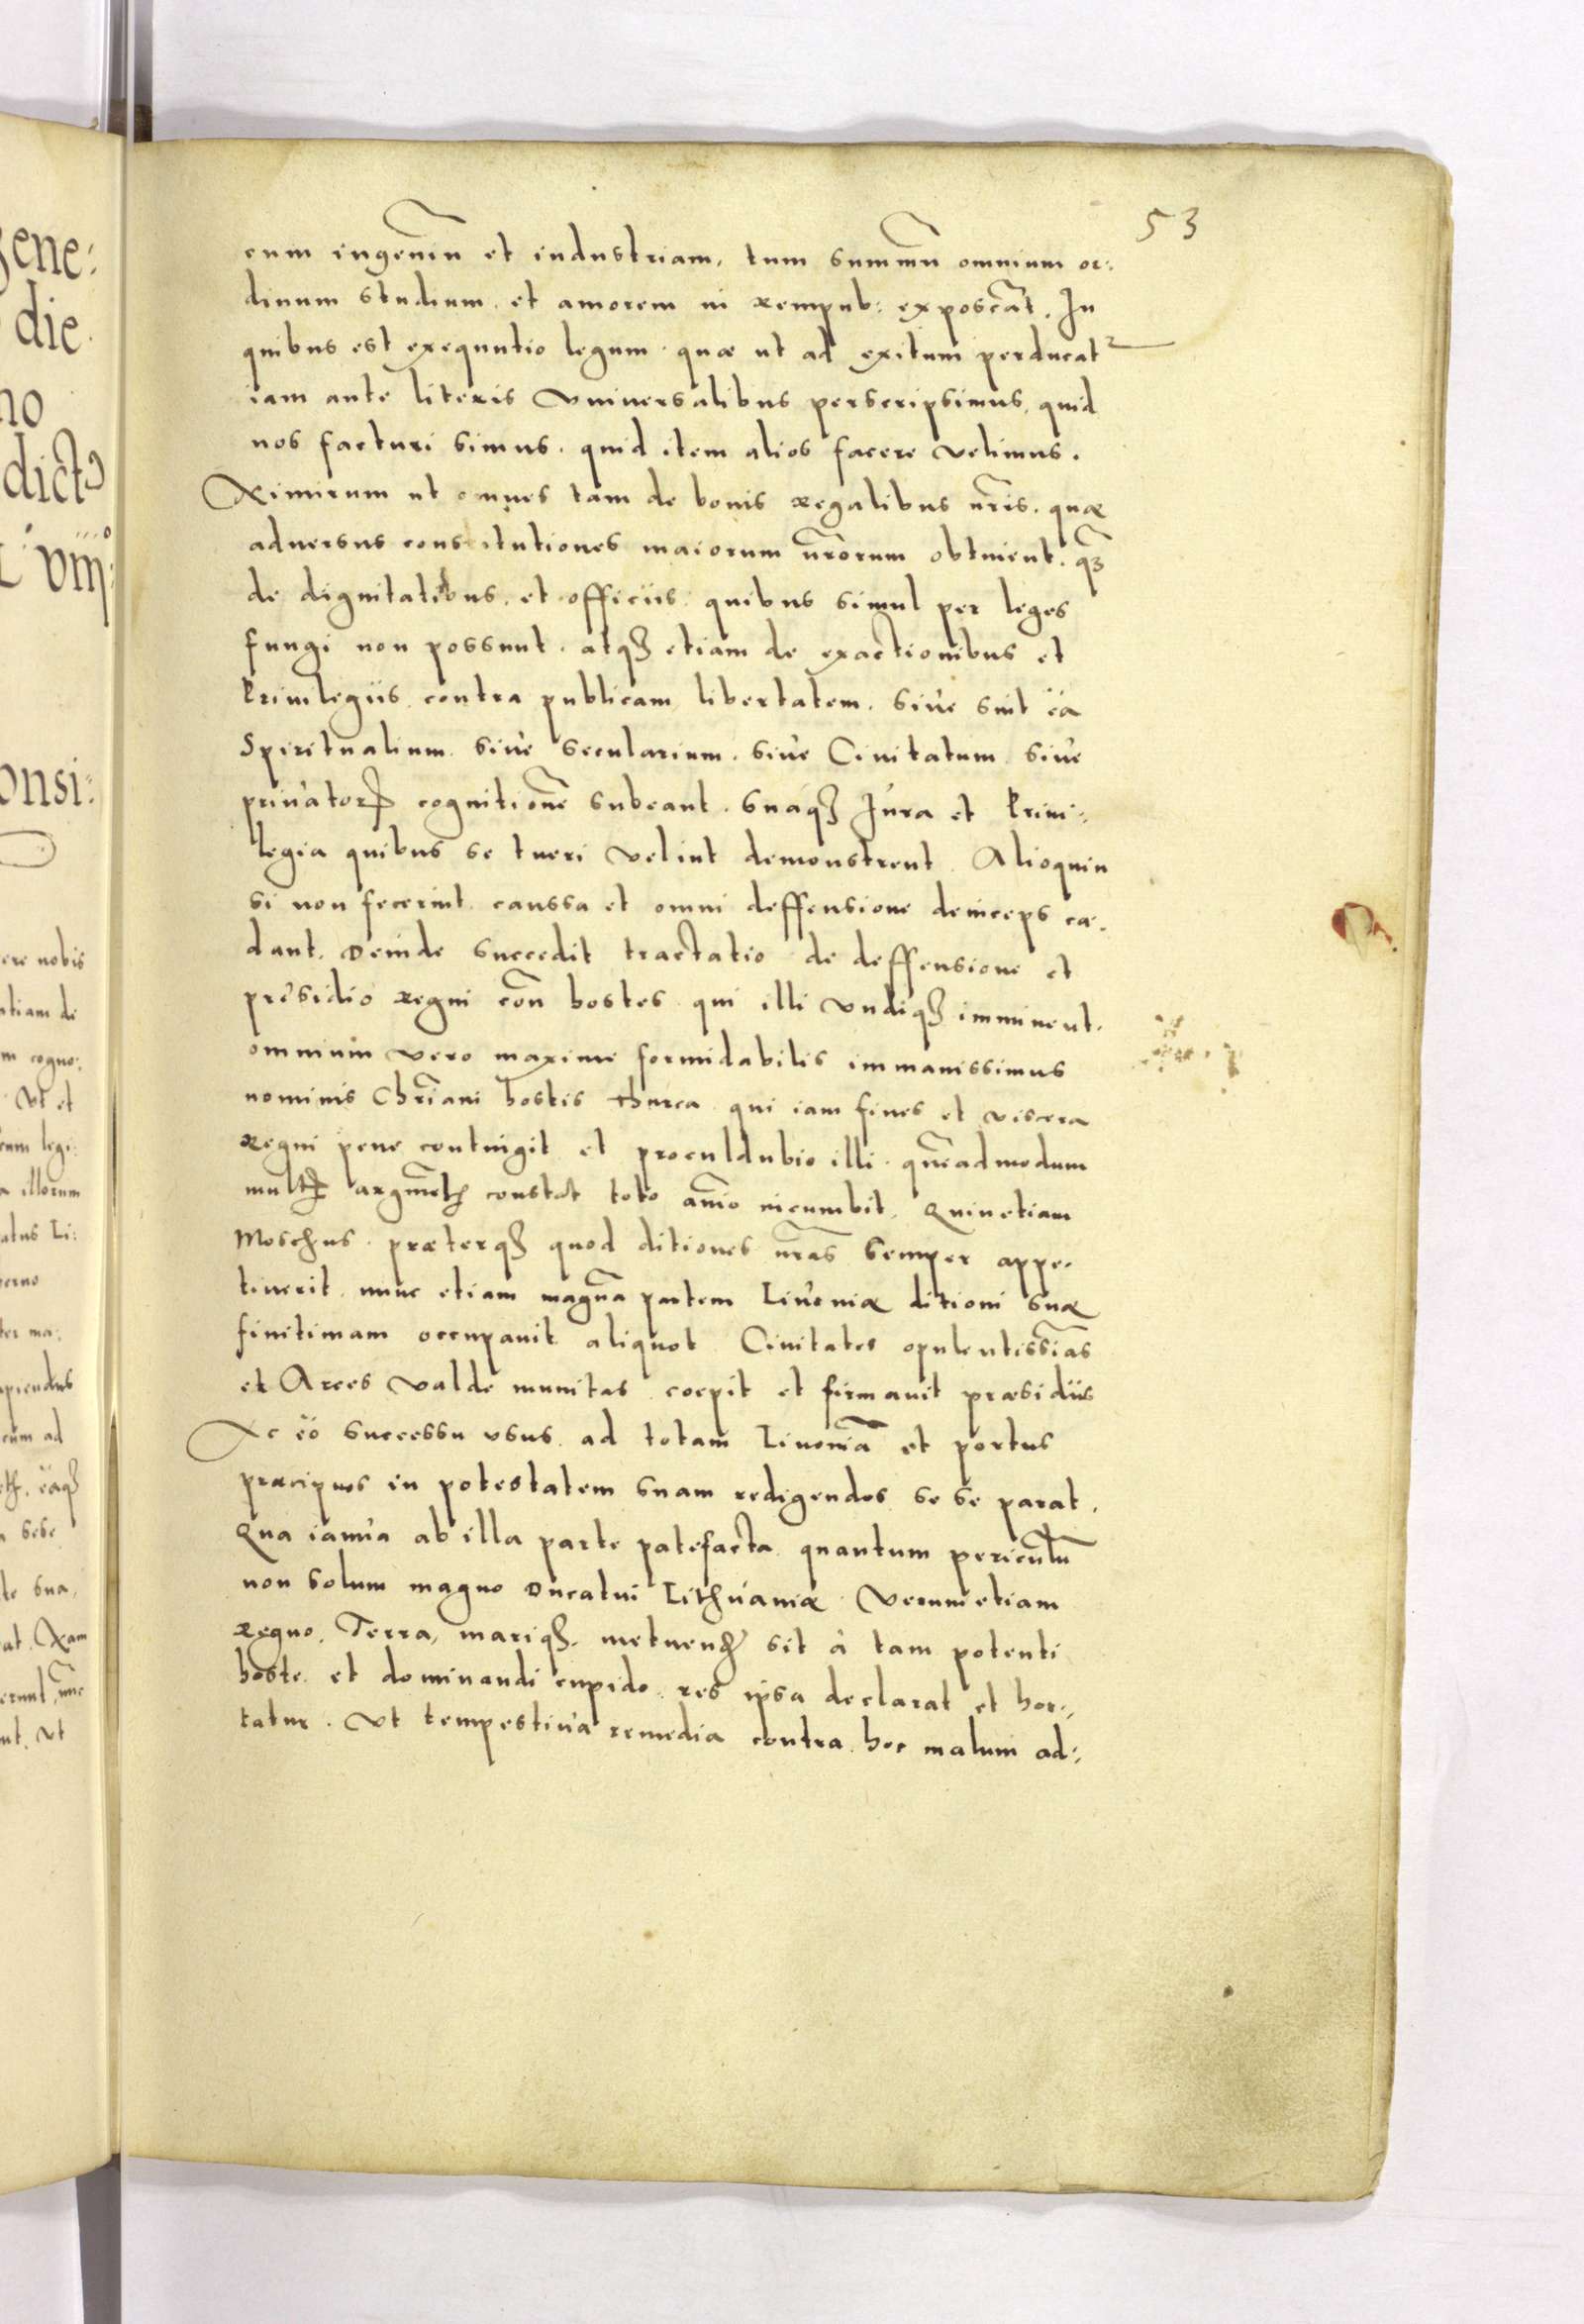 53
cum ingeniũ et industriam, tum summũ omnium or:
dinum studium et amorem in rempub: exposcãt. In
quibus est exequutio legum quæ ut ad exitum perducatr
iam ante literis Vniversalibus perscripsimus, quid
nos facturi simus, quid item alios facere velimus.
Nimirum ut omnes tam de bonis regalibus nr̃is, quæ
adversus constitutiones maiorum nr̃orum obtinent, q̃z
de dignitatibus, et officiis quibus simul per leges
fungi non possunt, atqȝ etiam de exactionibus et
Privilegiis contra publicam libertatem, sive sint ea
Spiritualium sive secularium, sive Civitatum sive
privatorꝝ cognitionẽ subeant, suaqȝ Jura et Privi:
legia quibus se tueri velint demonstrent. Alioquin
si non fecerint caussa et omni deffensione deinceps ca:
dant. Deinde succedit tractatio de deffensione et
presidio regni con̄ hostes qui illi undiqȝ imminent,
omnium vero maxime formidabilis immanissimus
nominis Chr̃iani hostis Thurca qui iam fines et viscera
regni pene contingit et proculdubio illi quẽadmodum
multꝭ argumẽtꝭ constat toto aĩo incumbit. Quinetiam
Moschus præterqȝ quod ditiones nr̃as semper appe:
tiverit nunc etiam magnã partem Livoniæ ditioni suæ
finitimam occupavit aliquot Civitates opulentissĩas
et Arces valde munitas coepit et firmavit præsidiis
Ac eo successu usus ad totam Livoniã et portus
præcipuos in potestatem suam redigendos se se parat.
Qua ianua ab illa parte patefacta quantum periculũ
non solum magno Ducatui Lithvaniæ Verumetiam
regno, Terra, mariqȝ metuendꝫ sit à tam potenti
hoste et dominandi cupido res ipsa declarat et hor:
tatur. Ut tempestiva remedia contra hoc malum ad: